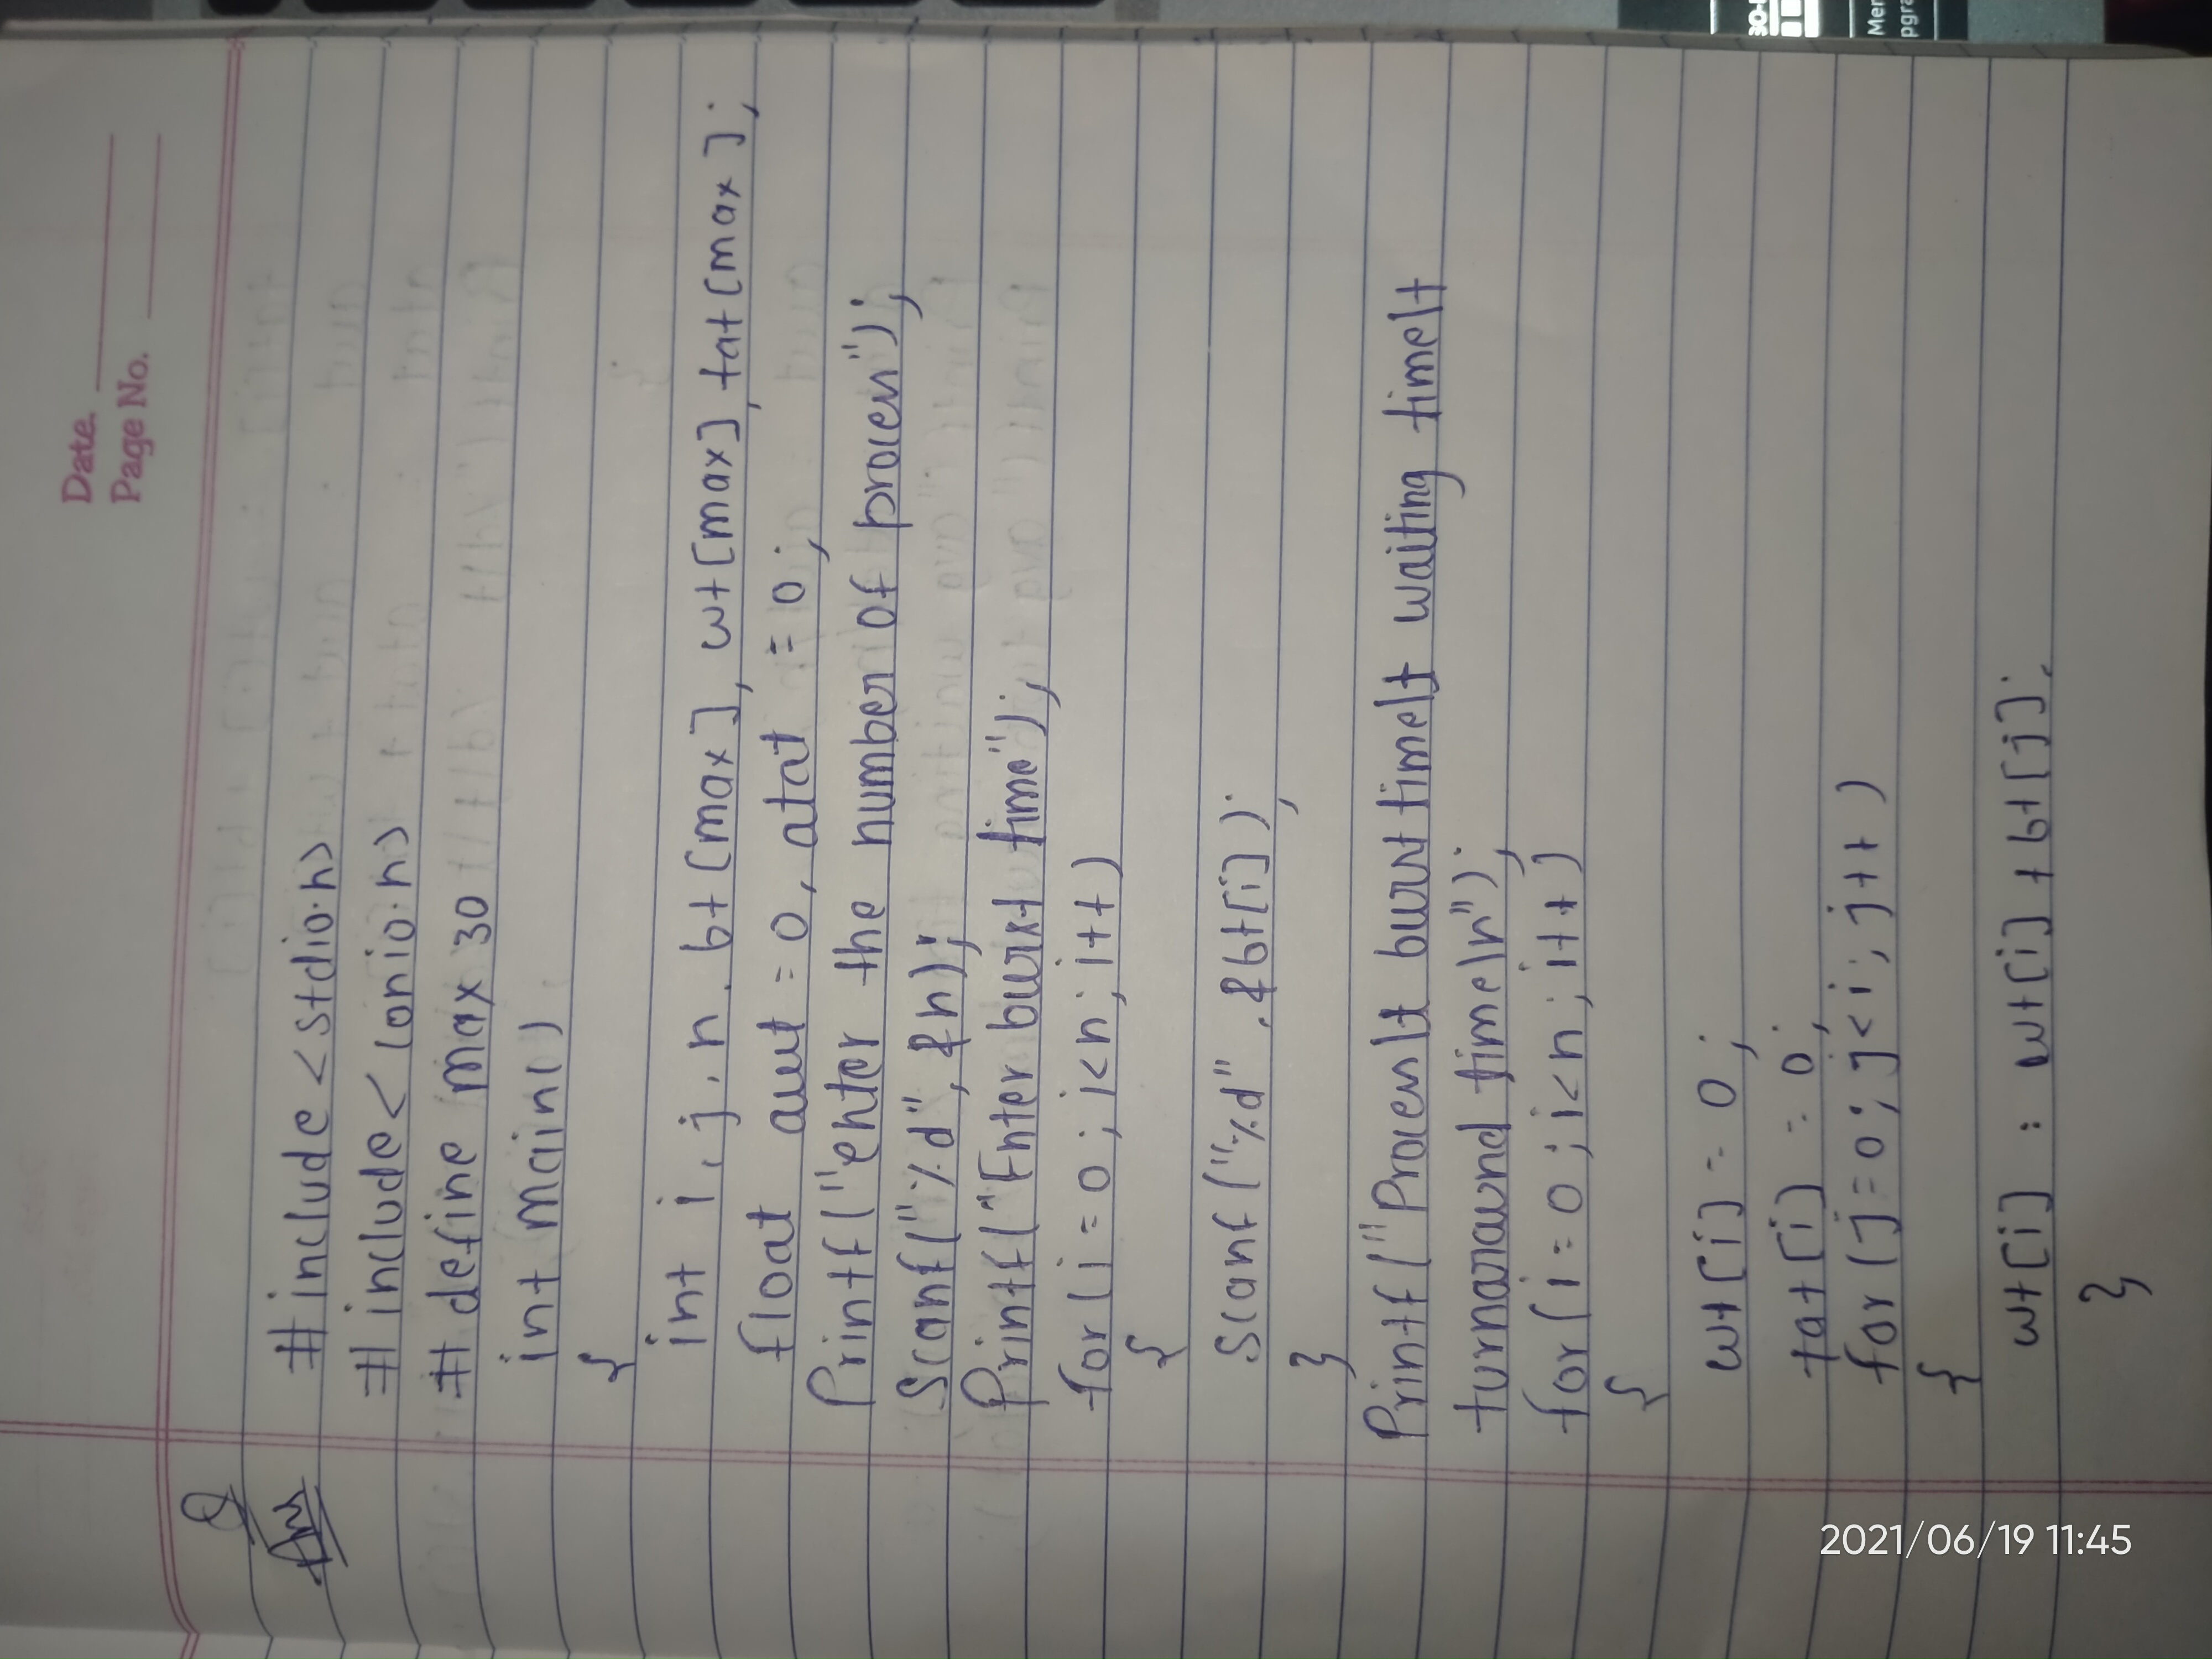 Date.
Page No.
Q
Ans
#include <stdio.h>
#include< conio.h>
# define max 30
int main()
{
int i, j, n, bt[max], wt[max], tat[max];
float awt = 0, atat = 0;
Printf("enter the number of process");
Scanf("%d", &n);
Printf("Enter burst time");
for(i = 0; i<n; i++)
{
Scanf("%d", &bt[i]);
}
Printf("Process\t burst time\t waiting time\t
turnaround time\n");
for(i = 0; i<n; i++)
{
wt[i] = 0;
tat[i] = 0;
for(j=0; j<i; j++)
{
wt[i] = wt[i] + bt[j];
}
2021/06/19 11:45